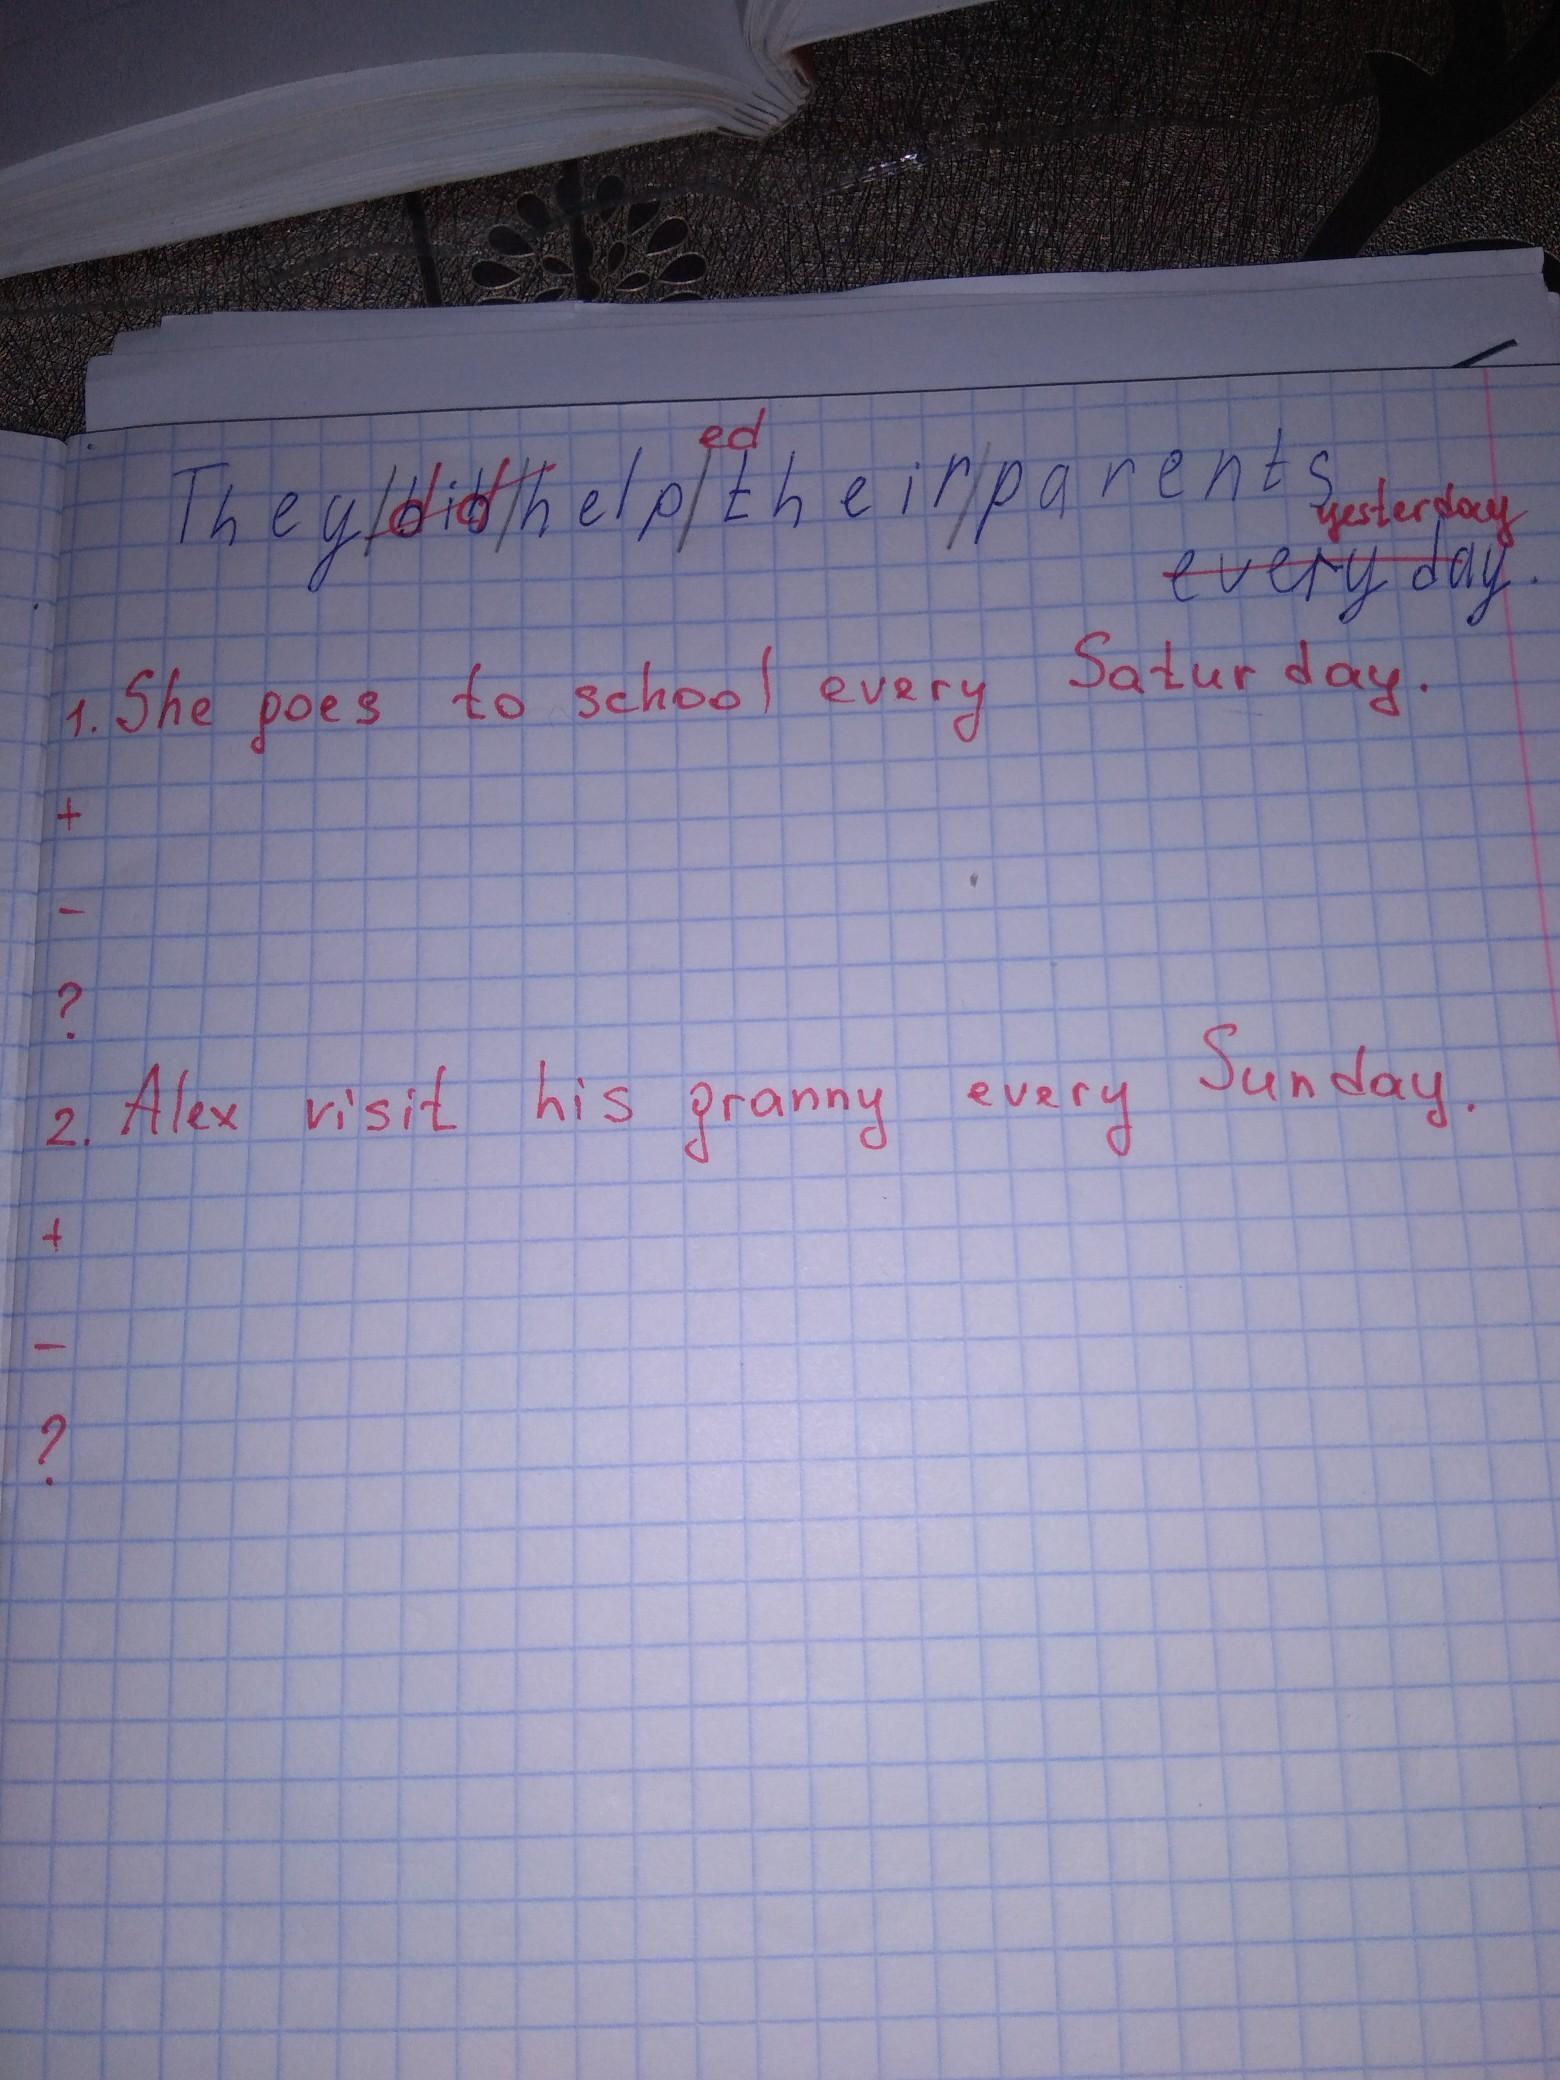 ed
They/did/help/their/parents
yesterday
every day.
1. She goes to school every Saturday.
+
-
?
2. Alex visit his granny every Sunday.
+
-
?